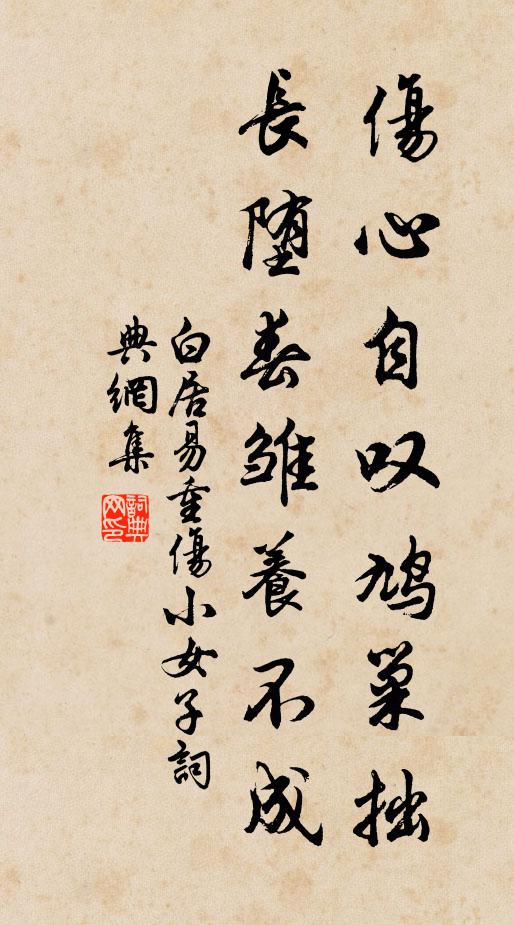 傷心自叹鳩巢拙
長堕春雛養不成
白居易重傷小女子詞
典網集
詞典网印